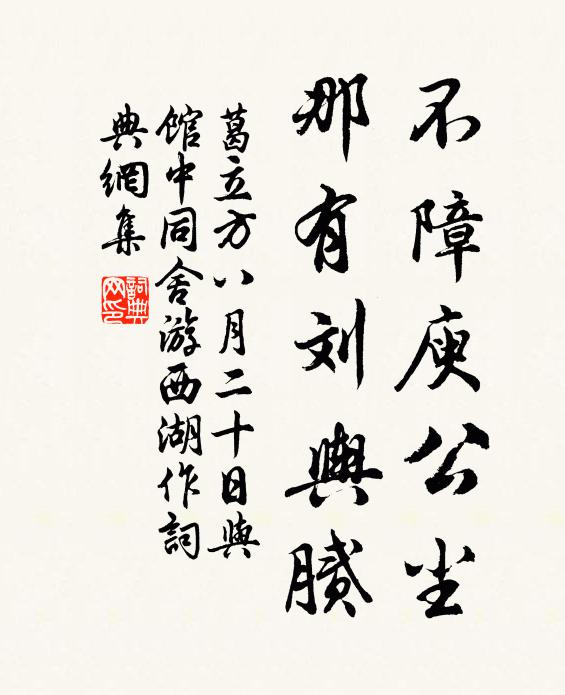 不障庾公尘
那有刘輿膩
葛立方八月二十日與
館中同舍游西湖作詞
典網集
詞典网印